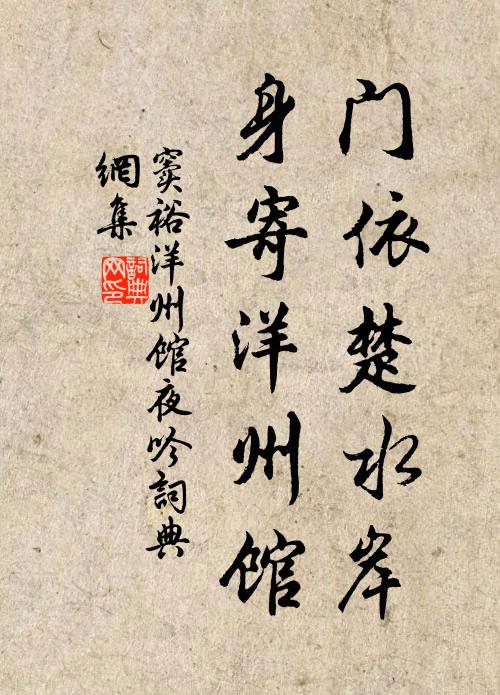 门依楚水岸
身寄洋州館
窦裕洋州館夜吟詞典
網集
詞典
网印